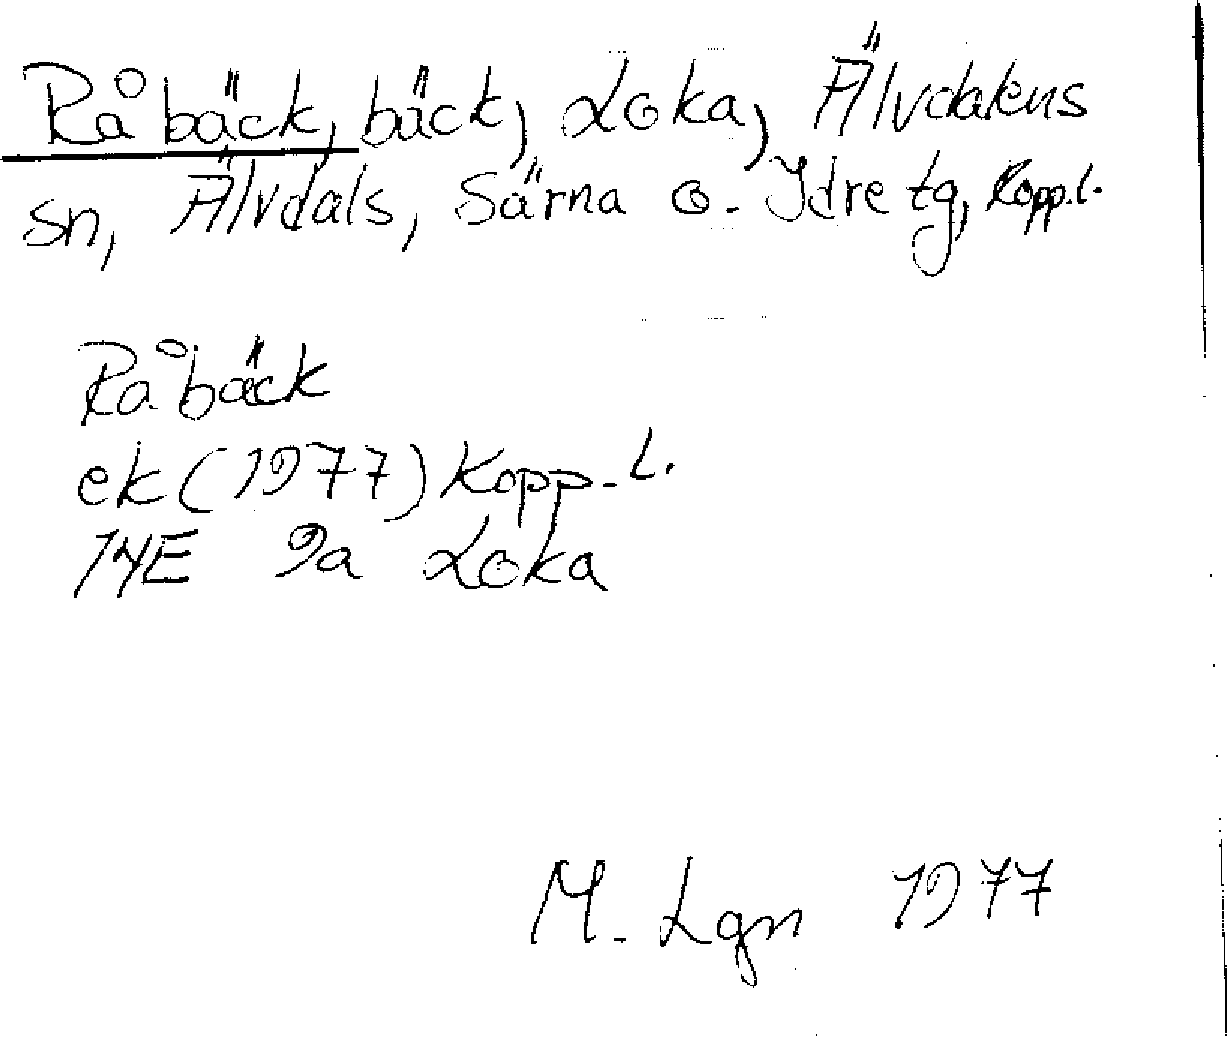 Råbäck, bäck, Loka, Älvdalens
sn, Älvdals, Särna o. Idre tg, Kopp.l.
Råbäck
ek (1977) Kopp.l.
14E 9a Loka
M. Lgn 1977